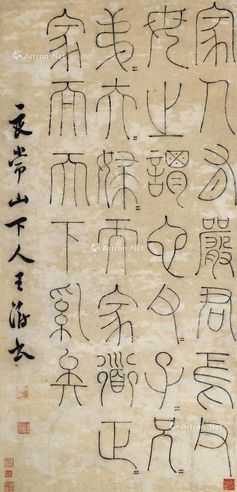 家人有嚴君焉父
母之謂也父〻子〻兄〻
弟〻夫〻婦〻而家道正〻
家而天下定矣
良常山下人王澍書
Artron.Net